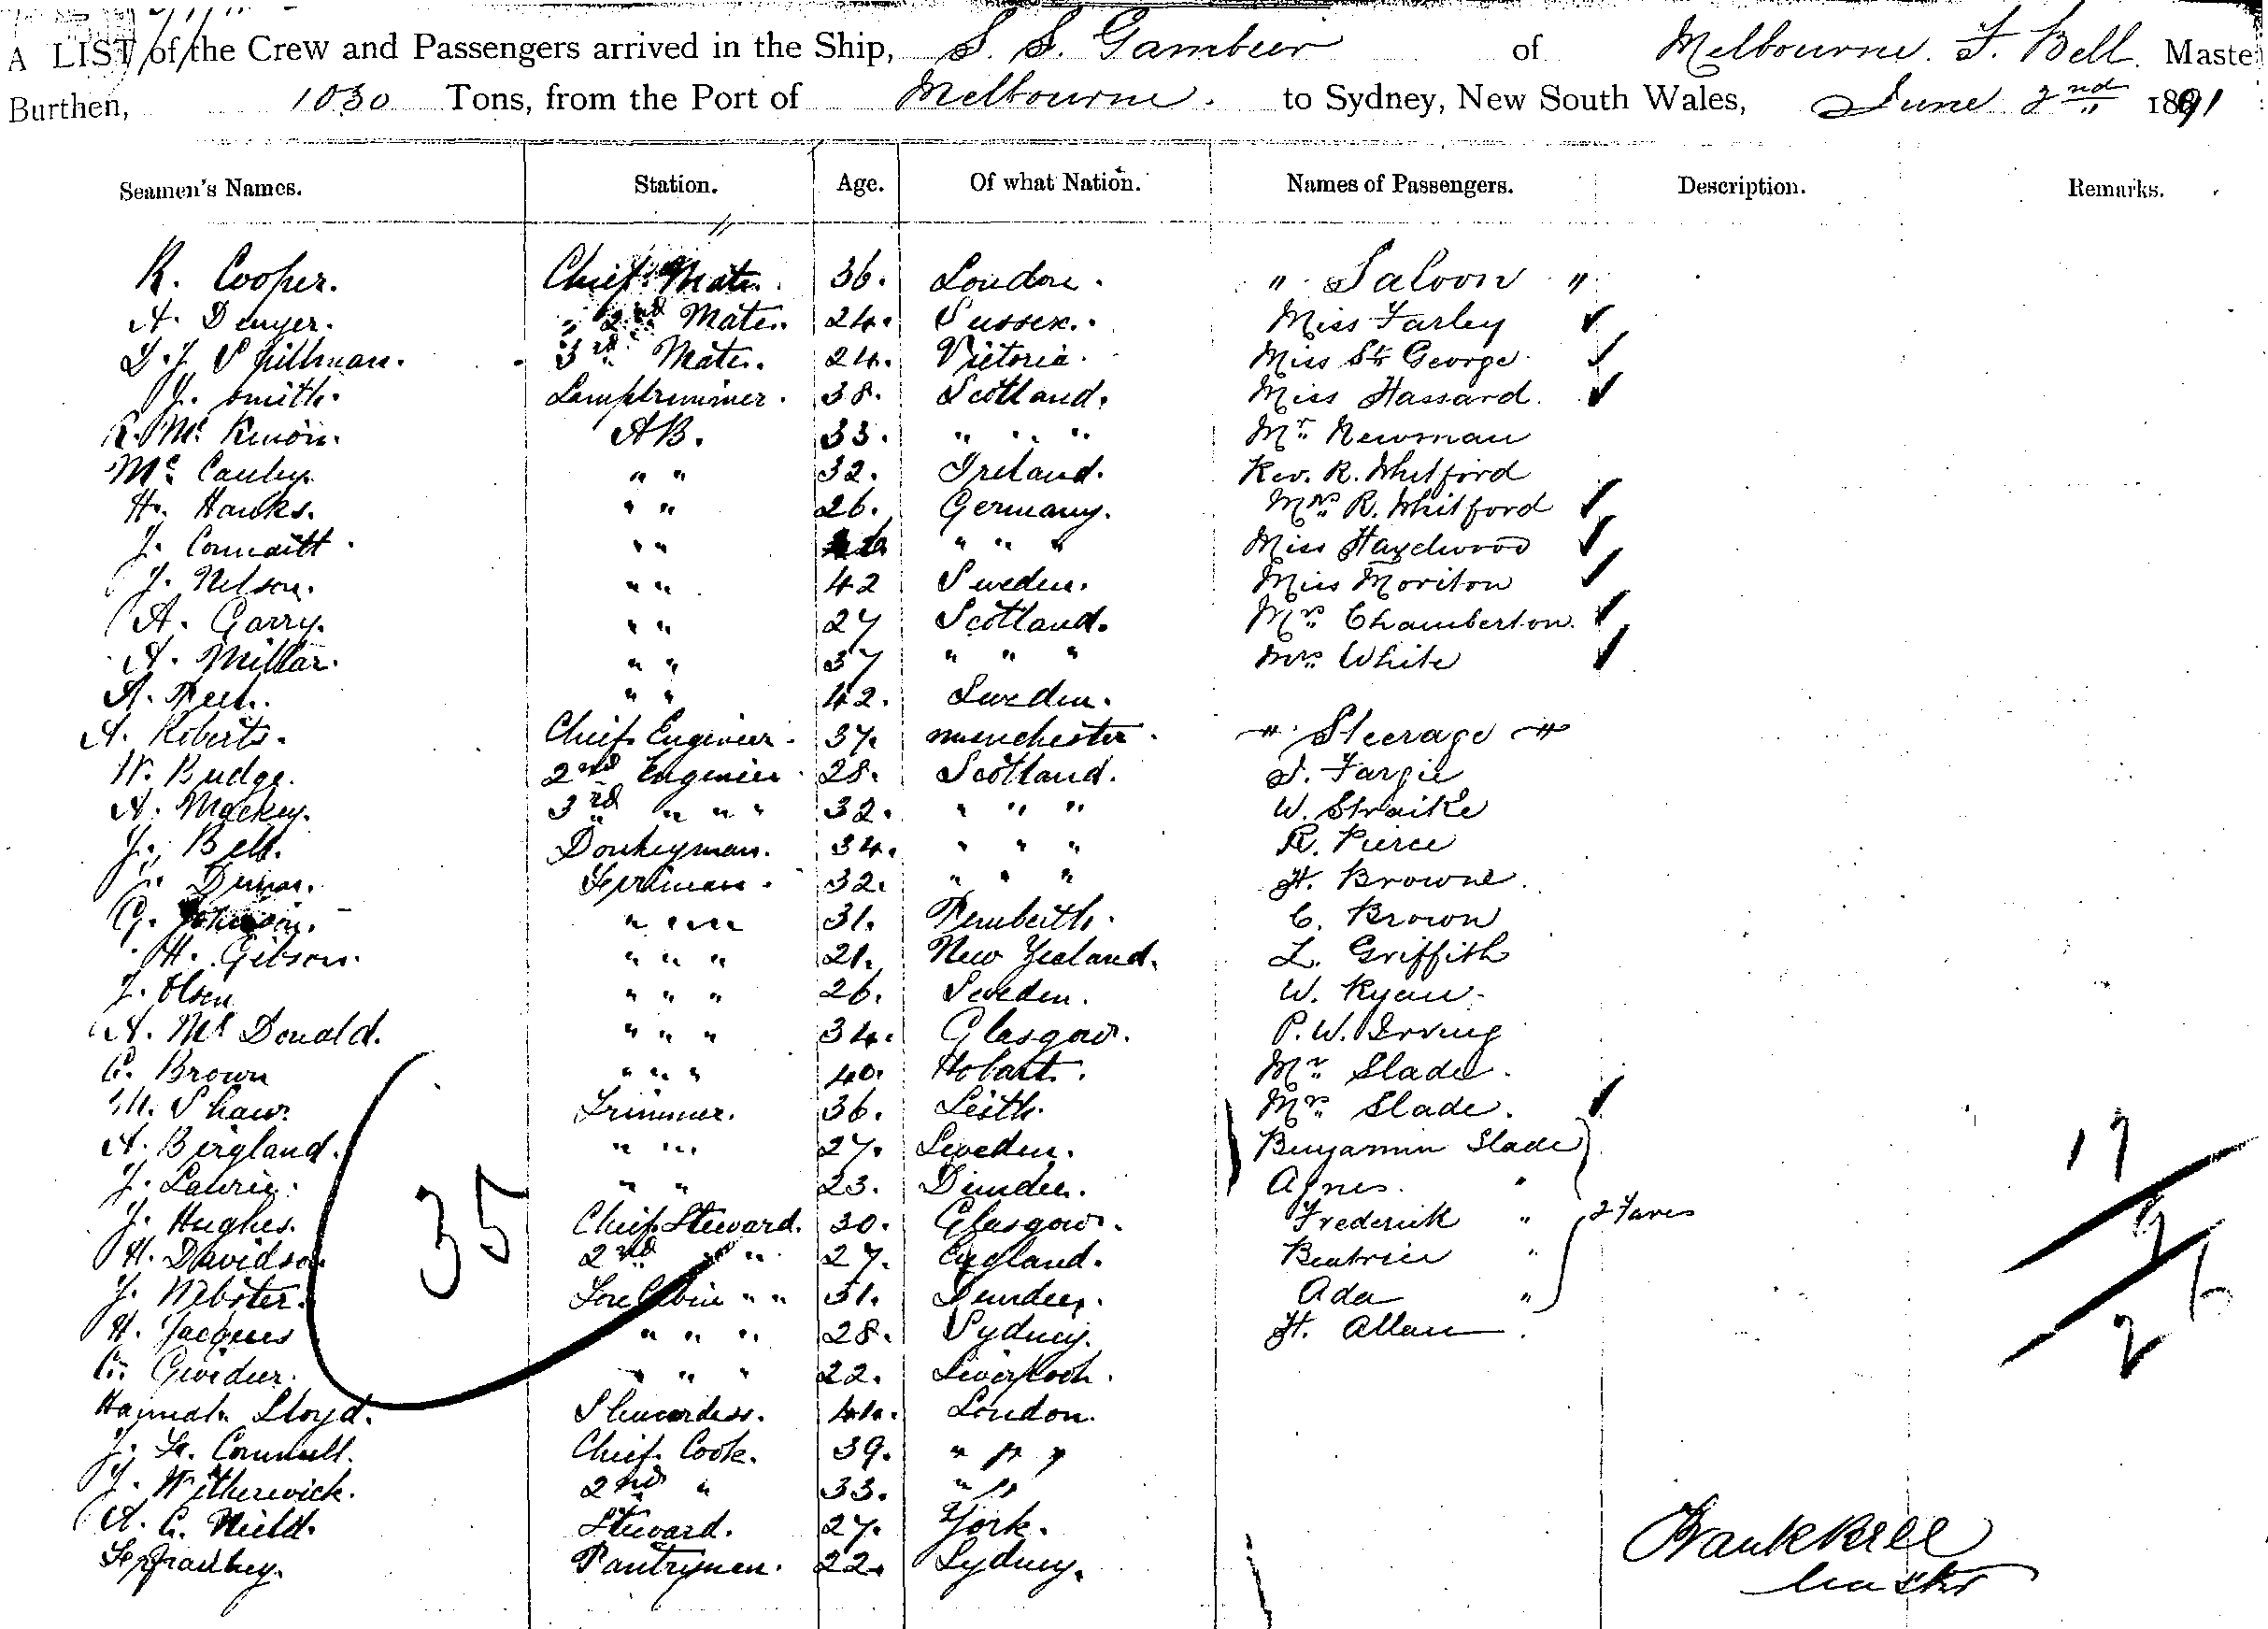 A LIST of the Crew and Passengers arrived in the Ship, S. S. Gambier of Melbourne. F. Bell. Master
Burthen, 1030 Tons, from the Port of Melbourne. to Sydney, New South Wales, June 2nd 1891
Seamen's Names. Station. Age. Of what Nation. Names of Passengers. Description. Remarks.
R. Cooper. Chief Mate. 36. London. " Saloon "
A. Denyer. 2nd Mate. 24. Sussex. Miss Farley ✓
Spillman. 3rd Mate. 24. Victoria. Miss St George ✓
J. Smith. Lamptrimmer. 38. Scotland. Miss Hassard. ✓
R. Mc Kinon. AB. 33. " " " Mr Newman
Mc Cauley. " " 32. Ireland. Rev. R. Whitford
H. Hanks. " " 26. Germany. Mrs R. Whitford ✓
J. " " " " " Miss Hazelwood ✓
J. Nelson. " " 42 Sweden. Miss Moriton ✓
A. Garry. " " 27 Scotland. Mrs Chamberton. ✓
A. Millar. " " 37 " " " Mrs White ✓
A. " " 42. Sweden.
A. Roberts. Chief Engineer. 37. Manchester. " Steerage "
W. Budge. 2nd Engineer 28. Scotland. J. Fargie
A. Mackey. 3rd " " " 32. " " " W. Straike
J. Bell. Donkeyman. 34. " " " R. Pierce
Fireman. 32. " " " H. Browne.
G. Johnson. " " " 31. Penberth. C. Brown
H. Gibson. " " " 21. New Zealand. L. Griffith
J. Olsen " " " 26. Sweden. W. Ryan.
A. Mc Donald. " " " 34. Glasgow. P. W. Irving
C. Brown " " " 40. Hobart. Mr Slade.
Shaw. Trimmer. 36. Leith. Mrs Slade. ✓
A. Bergland. " " 27. Sweden. Benjamin Slade
J. Lawrie. " " 23. Dundee. Agnes. "
J. Hughes. Chief Steward. 30. Glasgow. Frederick " 2 Fares
H. Davidson. 2nd " " 27. England. Beatrice "
J. Webster. Fore Cabin " " 31. Dundee. Ada "
H. Jacques " " " 28. Sydney. H. Allan.
G. " " " 22. Liverpool.
Hannah Lloyd. Stewardess. 44. London.
J. Chief Cook. 39. " " "
J. Witherwick. 2nd " 33. " "
A. C. Nield. Steward. 27. York.
Pantryman. 22. Sydney.
35
17
26
Frank Bell
Master